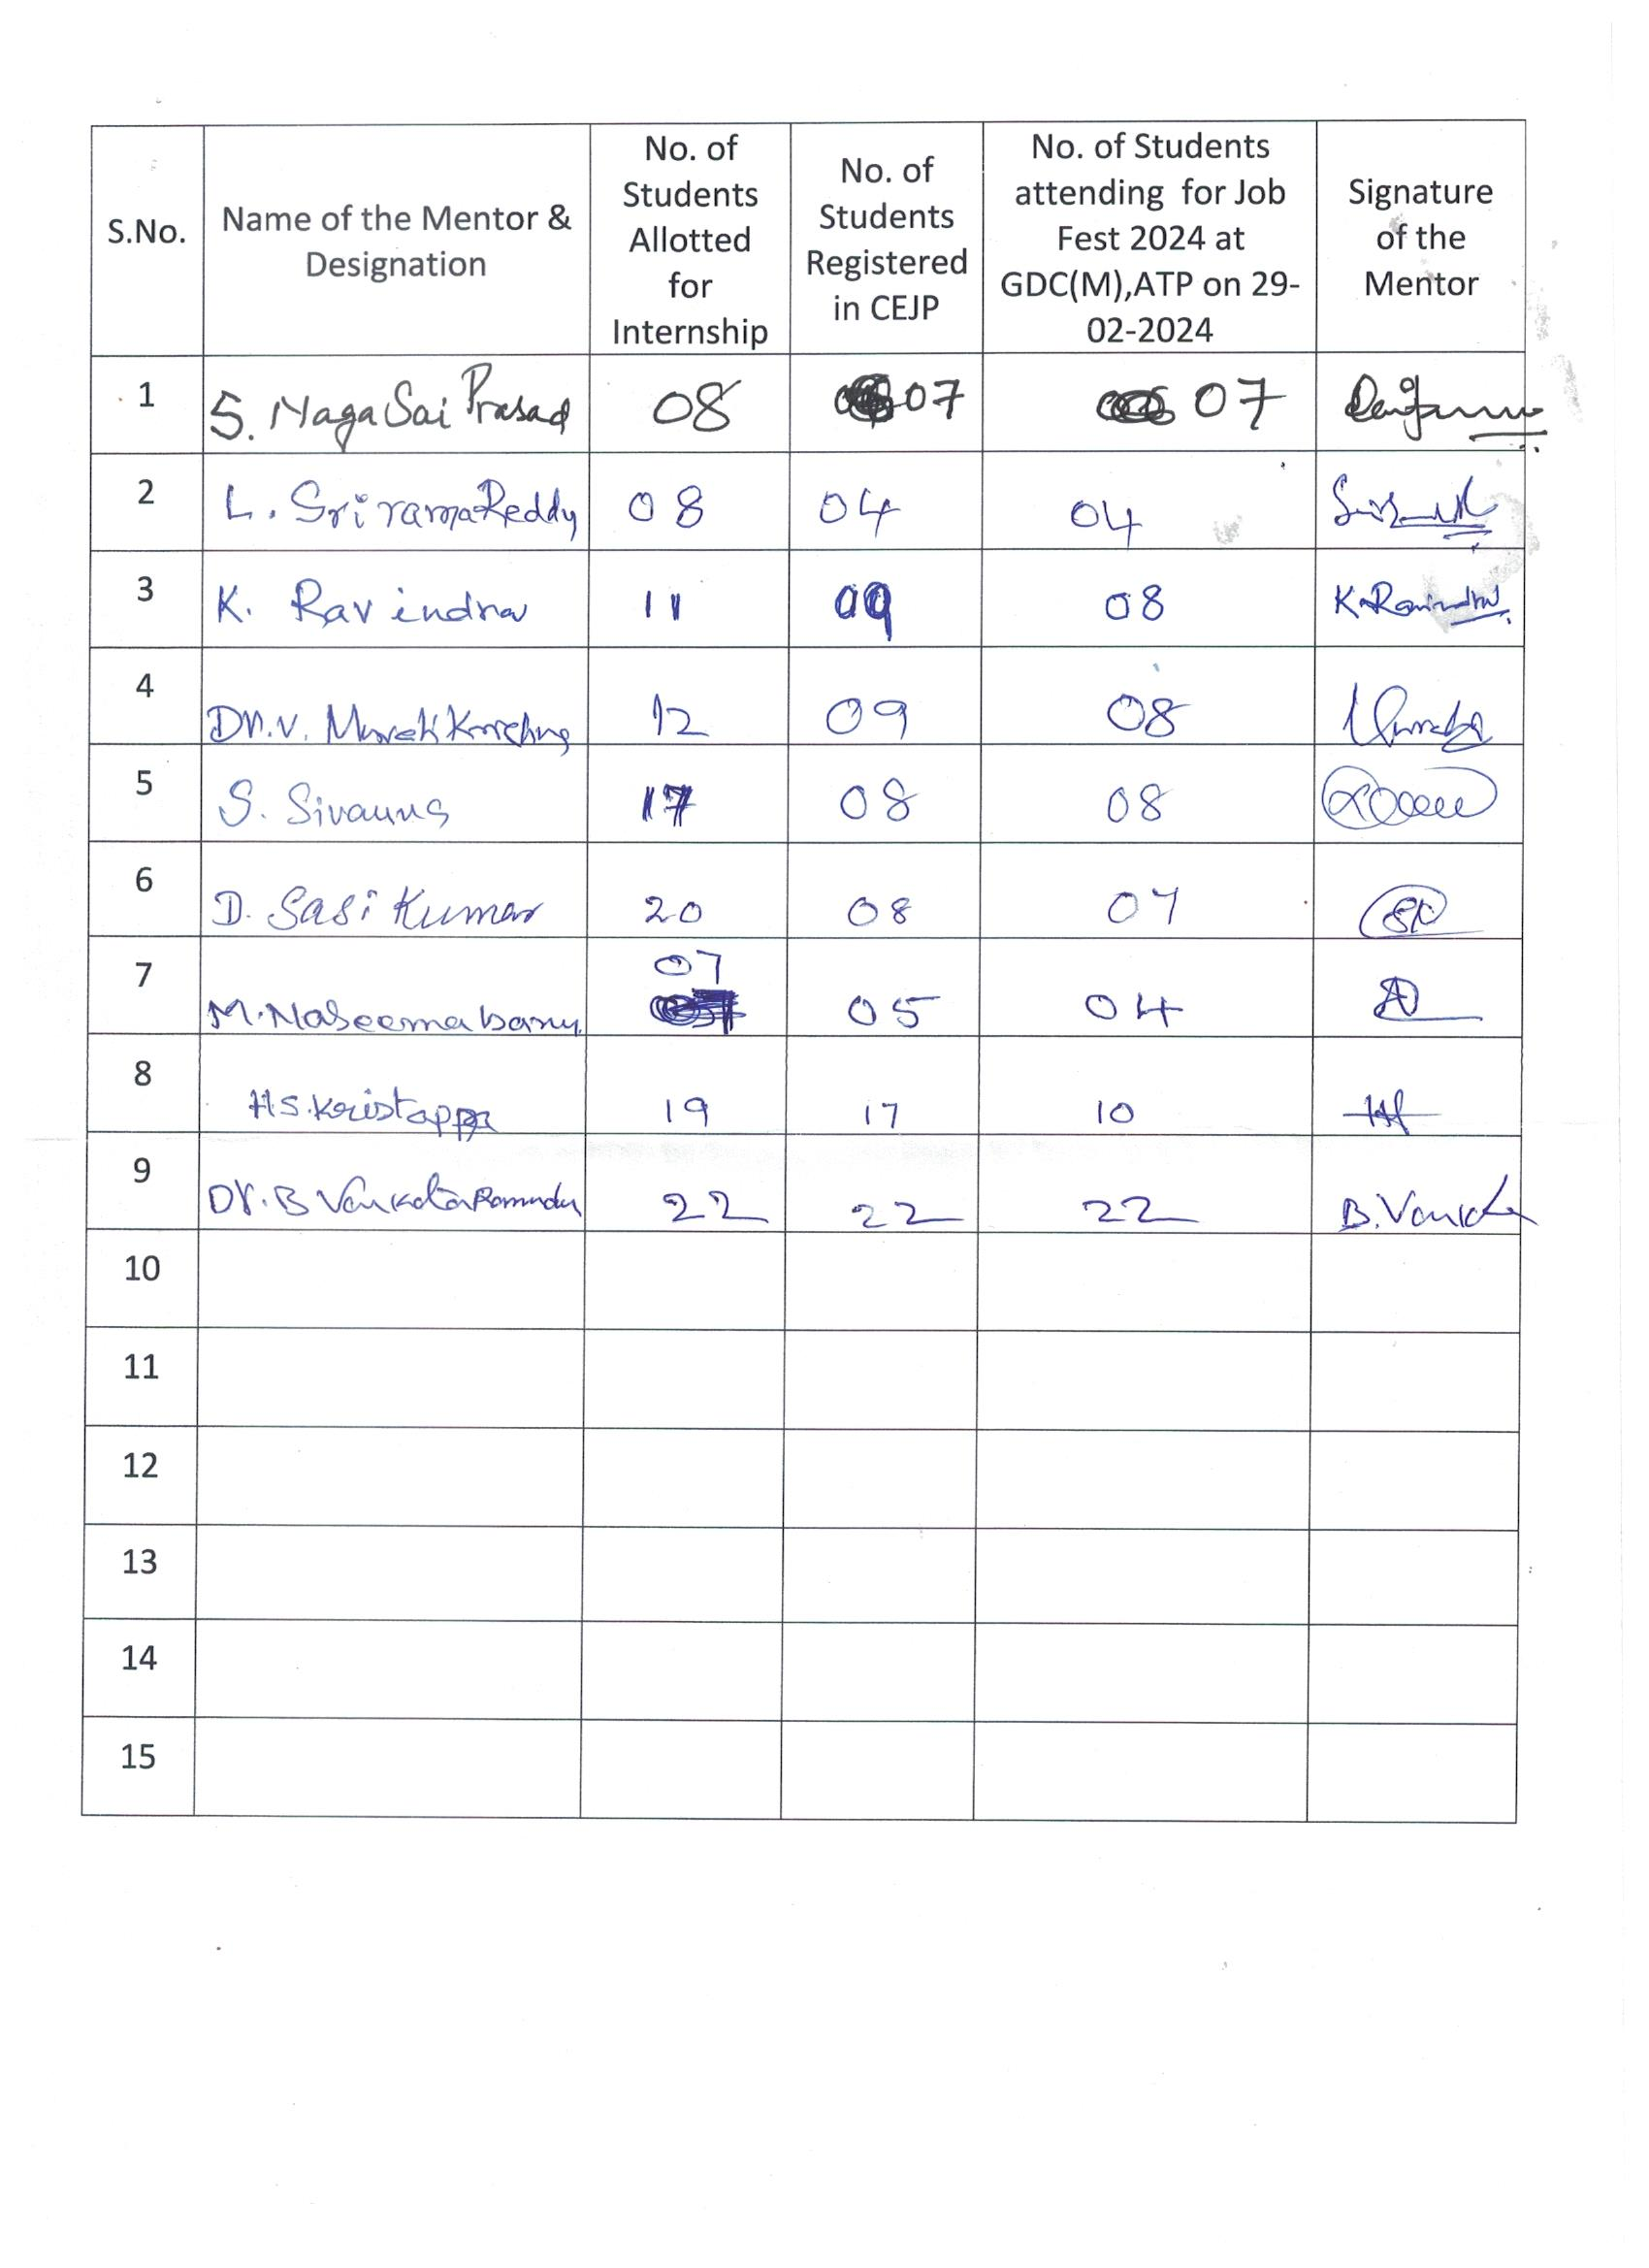 S.No.
Name of the Mentor &
Designation
No. of
Students
Allotted
for
Internship
No. of
Students
Registered
in CEJP
No. of Students
attending for Job
Fest 2024 at
GDC(M),ATP on 29-
02-2024
Signature
of the
Mentor
1 S. Naga Sai Prasad 08 07 07
2 L. Sri rama Reddy 08 04 04
3 K. Ravindra 11 09 08 K. Ravindra
4 Dr. V. Murali Krishna 12 09 08
5 S. 17 08 08
6 D. Sasi Kumar 20 08 07
7 M. Naseema banu 07 05 04
8 H.S. Kristappa 19 17 10
9 Dr. B Venkata Ramudu 22 22 22
10
11
12
13
14
15